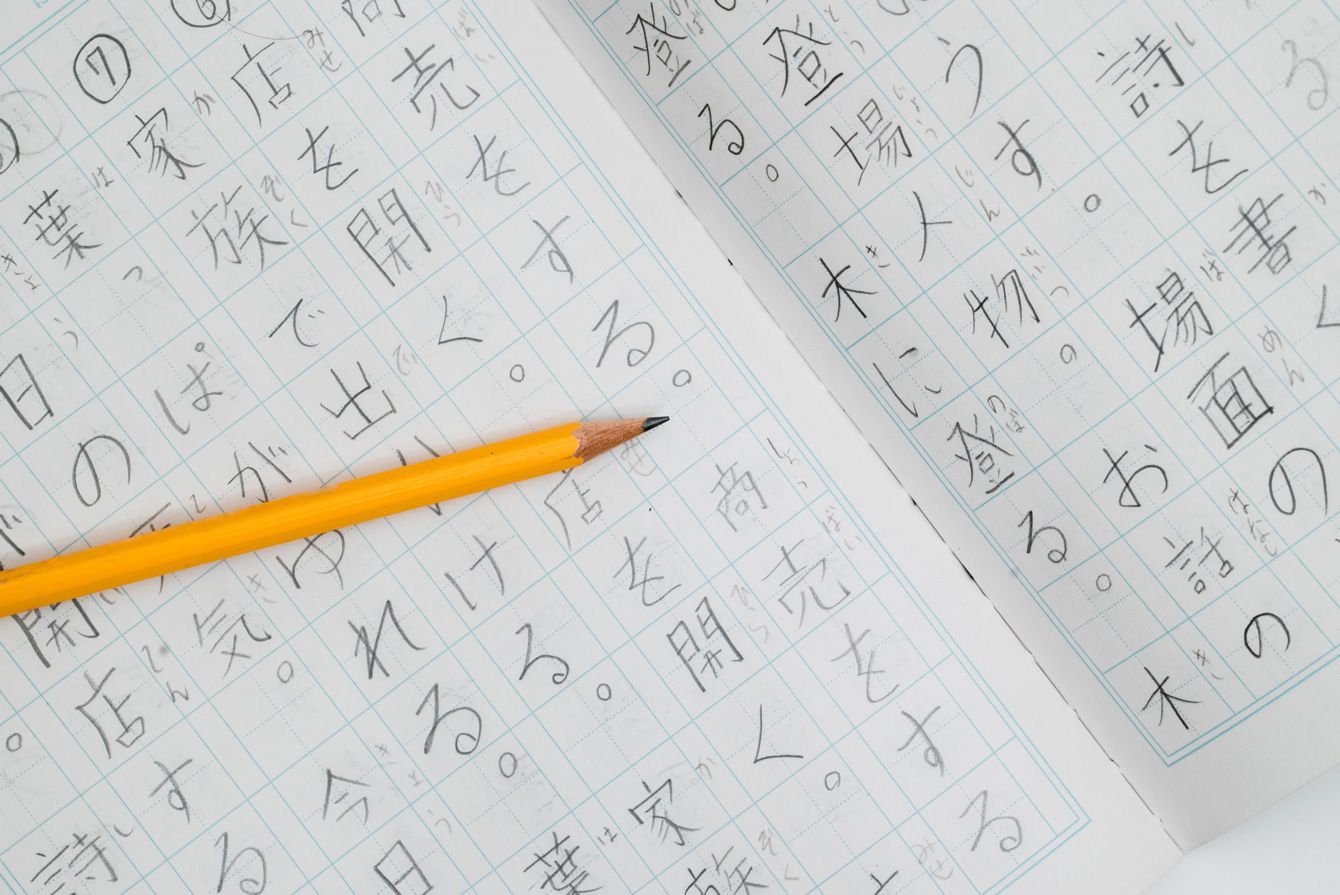 る
詩を書く
うす。場面の
登場人物。お話の
登る。木に登る。木
商売をする。商売をする
店を開く。店を開く。
⑦家族で出かける。家族
葉っぱがゆれる。葉
日の天気。今日
が開店する
。詩